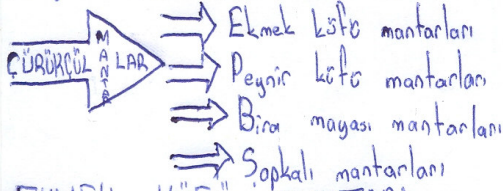 ÇÜRÜKÇÜL
MANTAR
LAR
Ekmek küfü mantarları
Peynir küfü mantarları
Bira mayası mantarları
Şapkalı mantarları